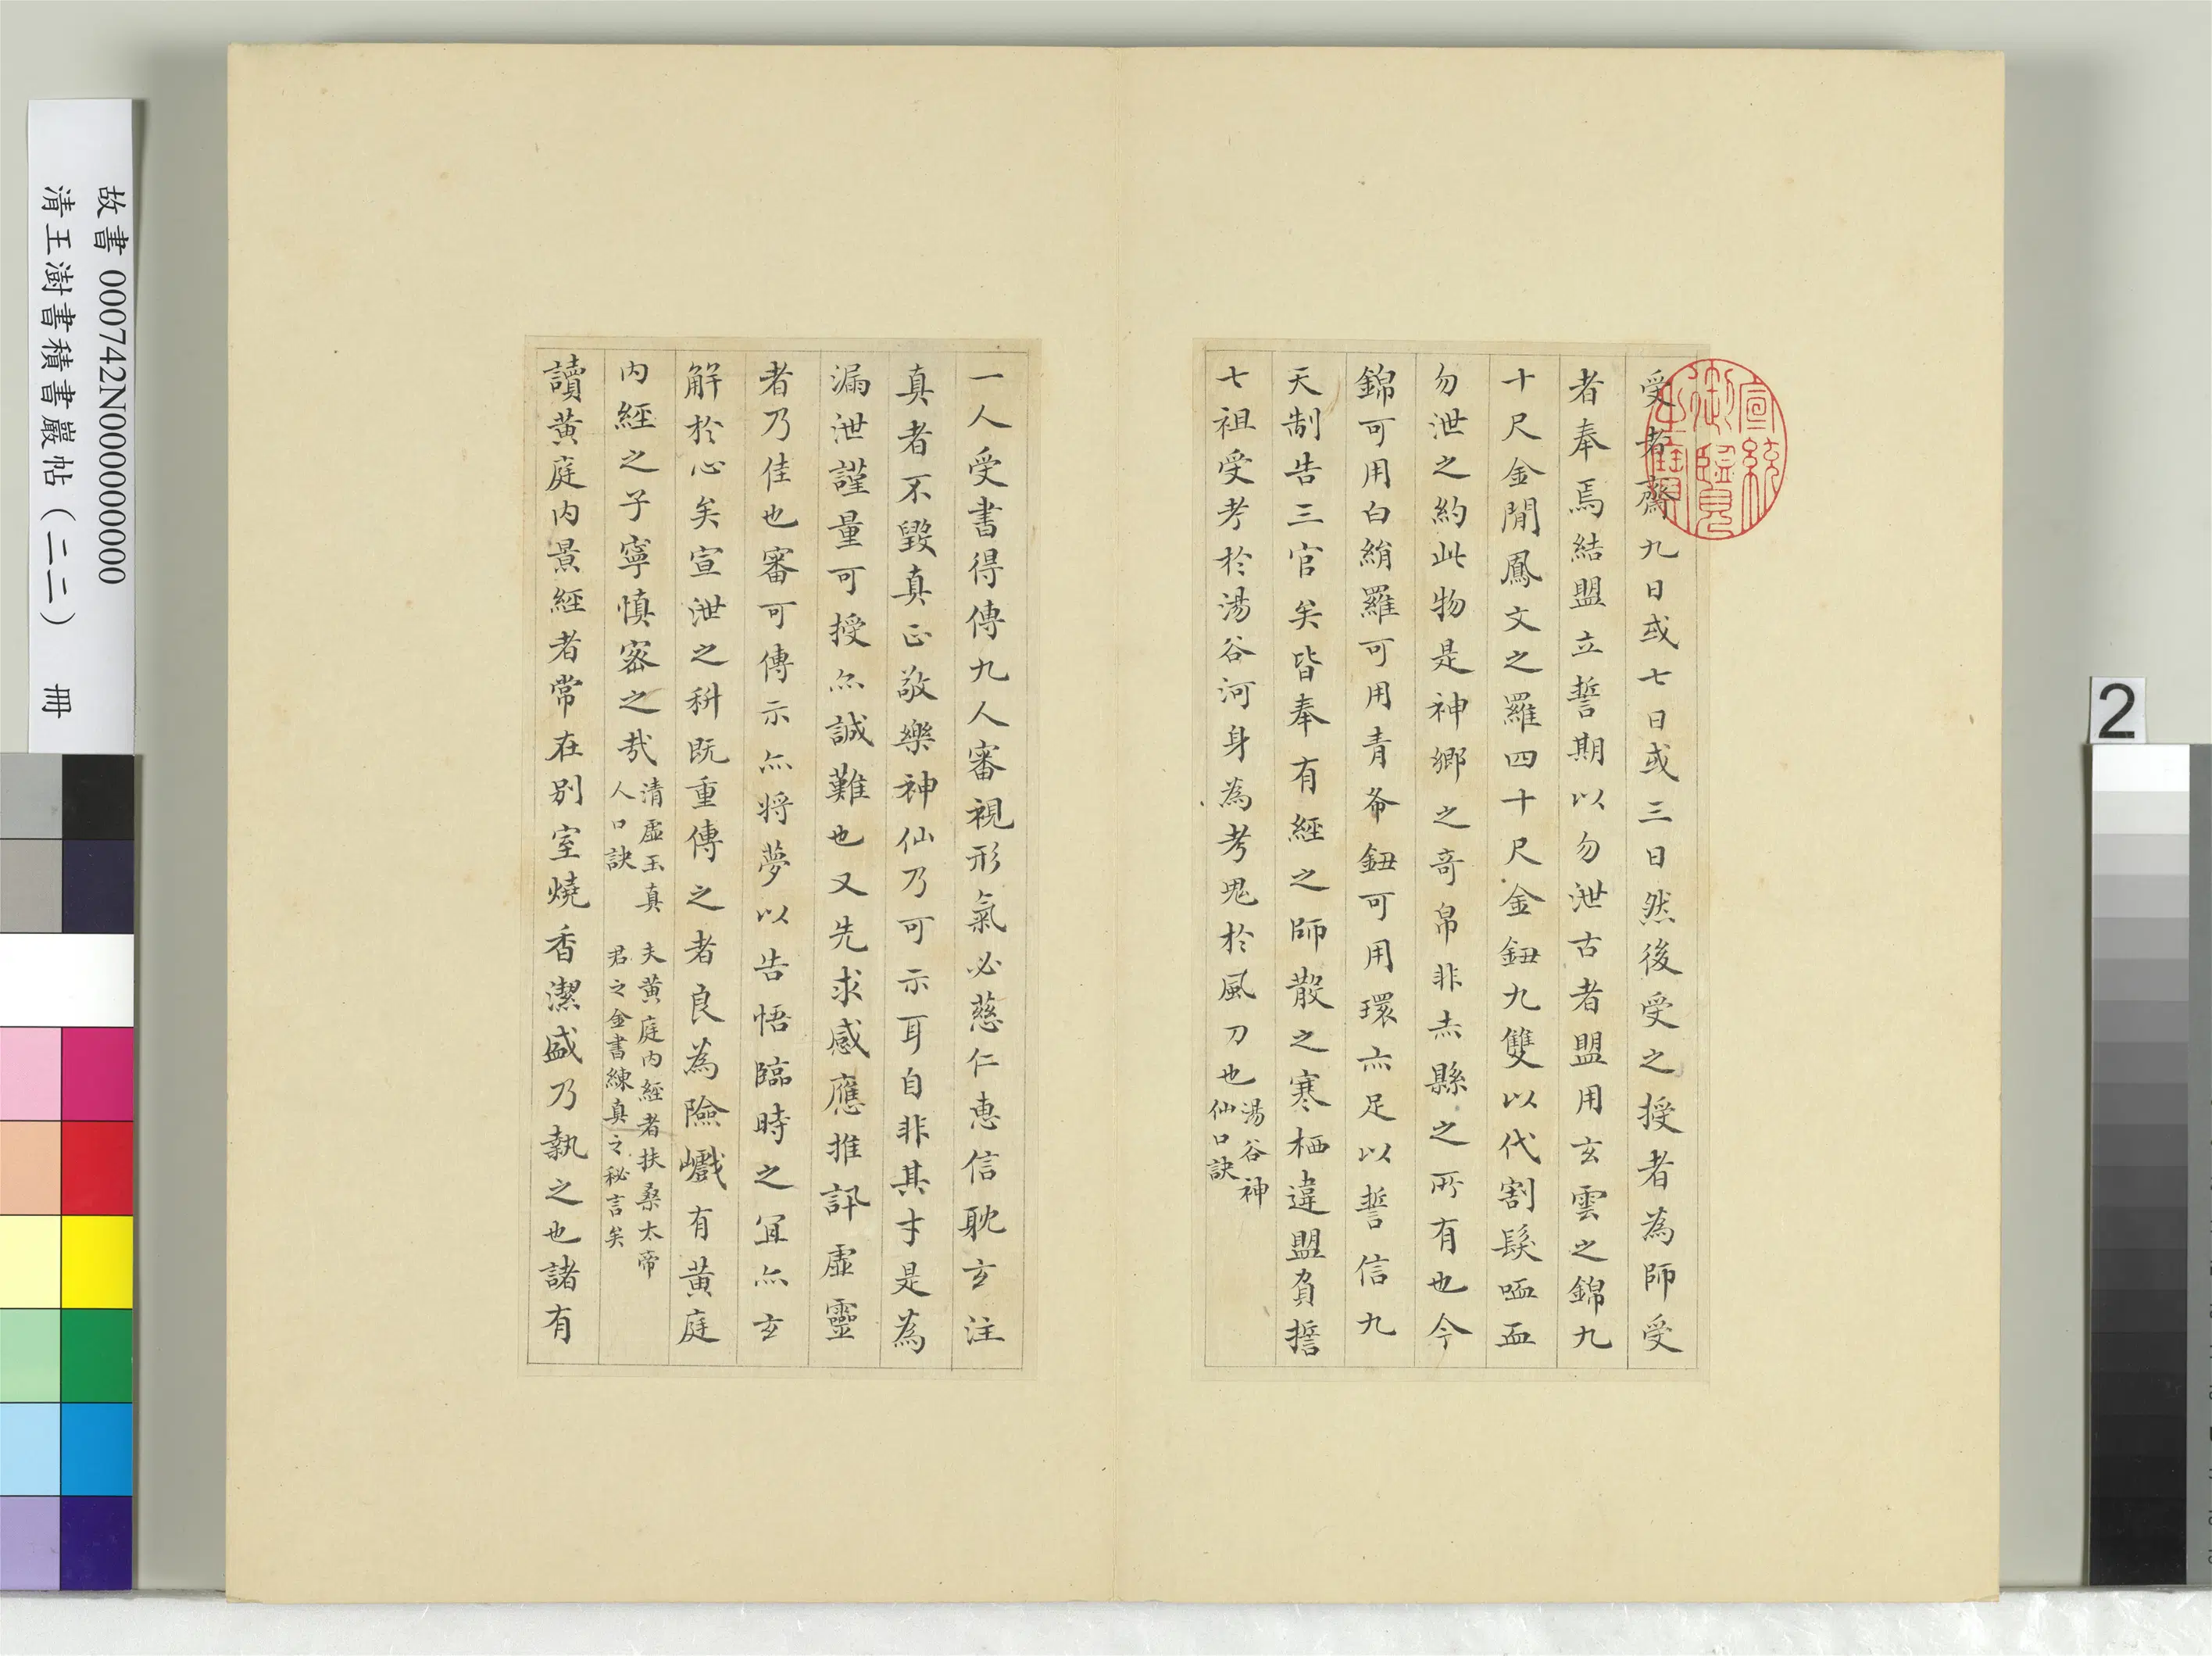 受者齋九日或七日或三日然後受之授者為師受
者奉焉結盟立誓期以勿泄古者盟用玄雲之錦九
十尺金閒鳳文之羅四十尺金鈕九雙以代割髮歃血
勿泄之約此物是神鄉之奇帛非赤縣之所有也今
錦可用白絹羅可用青布鈕可用環亦足以誓信九
天制告三官矣皆奉有經之師散之寒栖違盟負誓
七祖受考於湯谷河身為考鬼於風刀也
湯谷神
仙口訣
一人受書得傳九人審視形氣必慈仁惠信耽玄注
真者不毀真正敬樂神仙乃可示耳自非其才是為
漏泄謹量可授亦誠難也又先求感應推訊虛靈
者乃佳也審可傳示亦將夢以告悟臨時之宜亦玄
解於心矣宣泄之科既重傳之者良為險巇有黃庭
內經之子寧慎密之哉
清虛王真
人口訣
夫黃庭內經者扶桑太帝
君之金書練真之秘言矣
讀黃庭內景經者常在別室燒香潔盛乃執之也諸有
宣統
御覽
之寶
故書 000742N000000000
清王澍書積書巖帖（二二） 冊
2